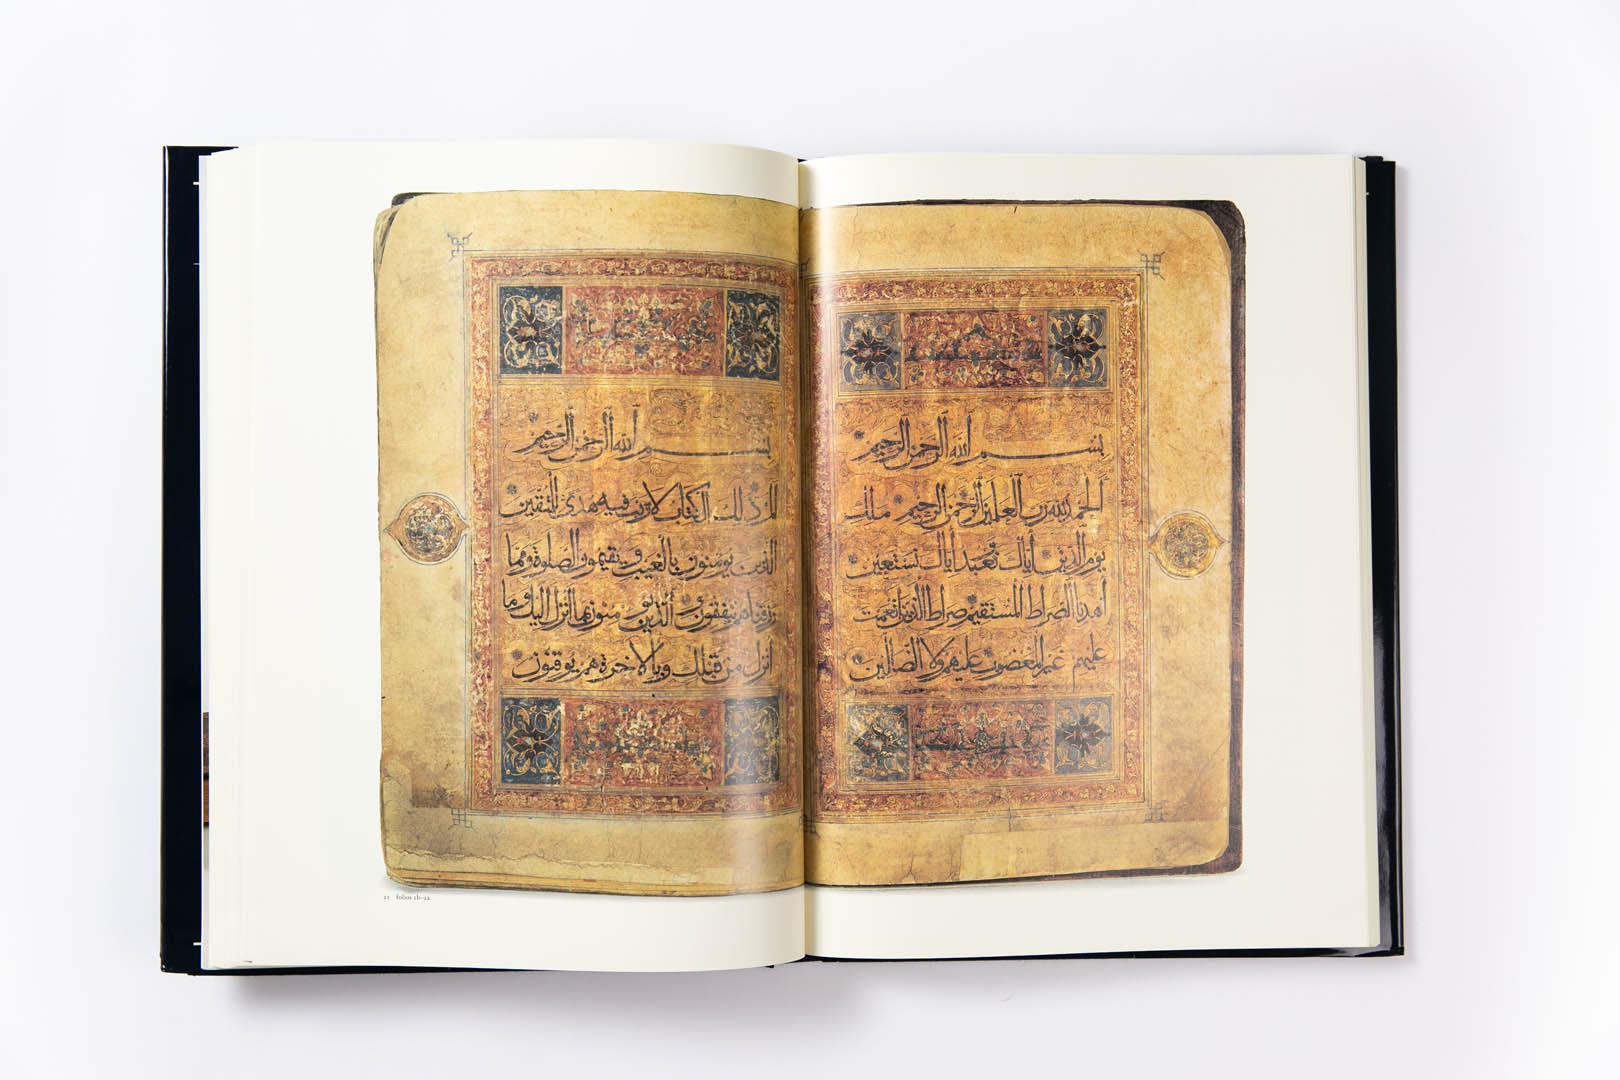 بسم الله الرحمن الرحيم
الحمد لله رب العلمين الرحمن الرحيم ملك
يوم الدين اياك نعبد واياك نستعين
اهدنا الصراط المستقيم صراط الذين انعمت
عليهم غير المغضوب عليهم ولا الضالين
بسم الله الرحمن الرحيم
الم ذلك الكتاب لا ريب فيه هدى للمتقين
الذين يومنون بالغيب ويقيمون الصلوة ومما
رزقناهم ينفقون والذين يومنون بما انزل اليك وما
انزل من قبلك وبالاخرة هم يوقنون
21 folios 1b–2a